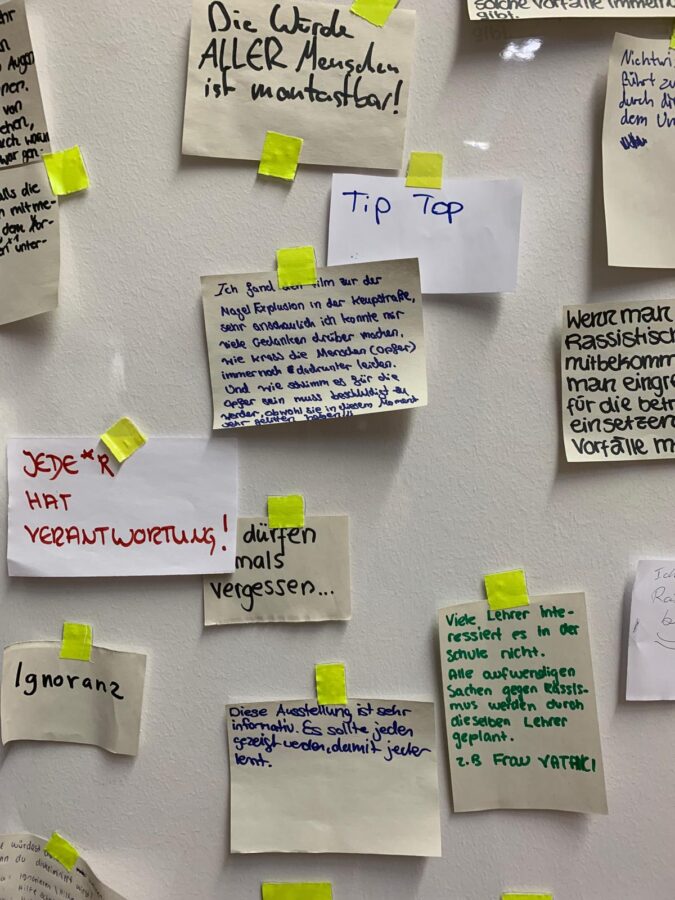 solche Vorfälle immer
gibt.
Die Würde
ALLER Menschen
ist unantastbar!
Augen
nen.
von
ehen,
Nichtwi
führt zu
durch di
dem Un
Tip Top
Ich fand den Film zur der
Nagel Explosion in der Keupstraße,
sehr anschaulich ich konnte mir
viele Gedanken drüber machen,
wie krass die Menschen (Opfer)
immernoch drunter leiden.
Und wie schlimm es für die
Opfer sein muss beschuldigt zu
werden, obwohl sie in diesem Moment
sehr gelitten haben!!!
Wenn man
Rassistisch
mitbekomm
man eingre
für die betr
einsetzen
Vorfälle m
JEDE*R
HAT
VERANTWORTUNG!
dürfen
mals
vergessen...
Viele Lehrer inte-
ressiert es in der
Schule nicht.
Alle aufwendigen
Sachen gegen Rassis-
mus werden durch
dieselben Lehrer
geplant.
z.B Frau
Ich
Ra
b
Ignoranz
Diese Ausstellung ist sehr
informativ. Es sollte jeden
gezeigt werden, damit jeder
lernt.